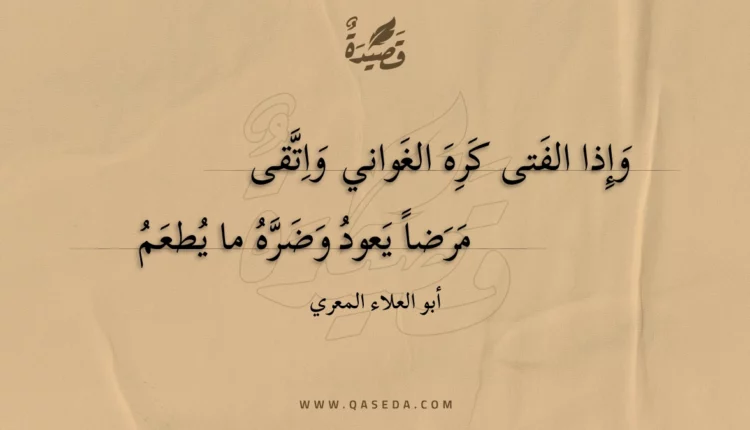 قَصِيدَةٌ
وَإِذا الفَتى كَرِهَ الغَواني وَاِتَّقى
مَرَضاً يَعودُ وَضَرَّهُ ما يُطعَمُ
أبو العلاء المعري
WWW.QASEDA.COM